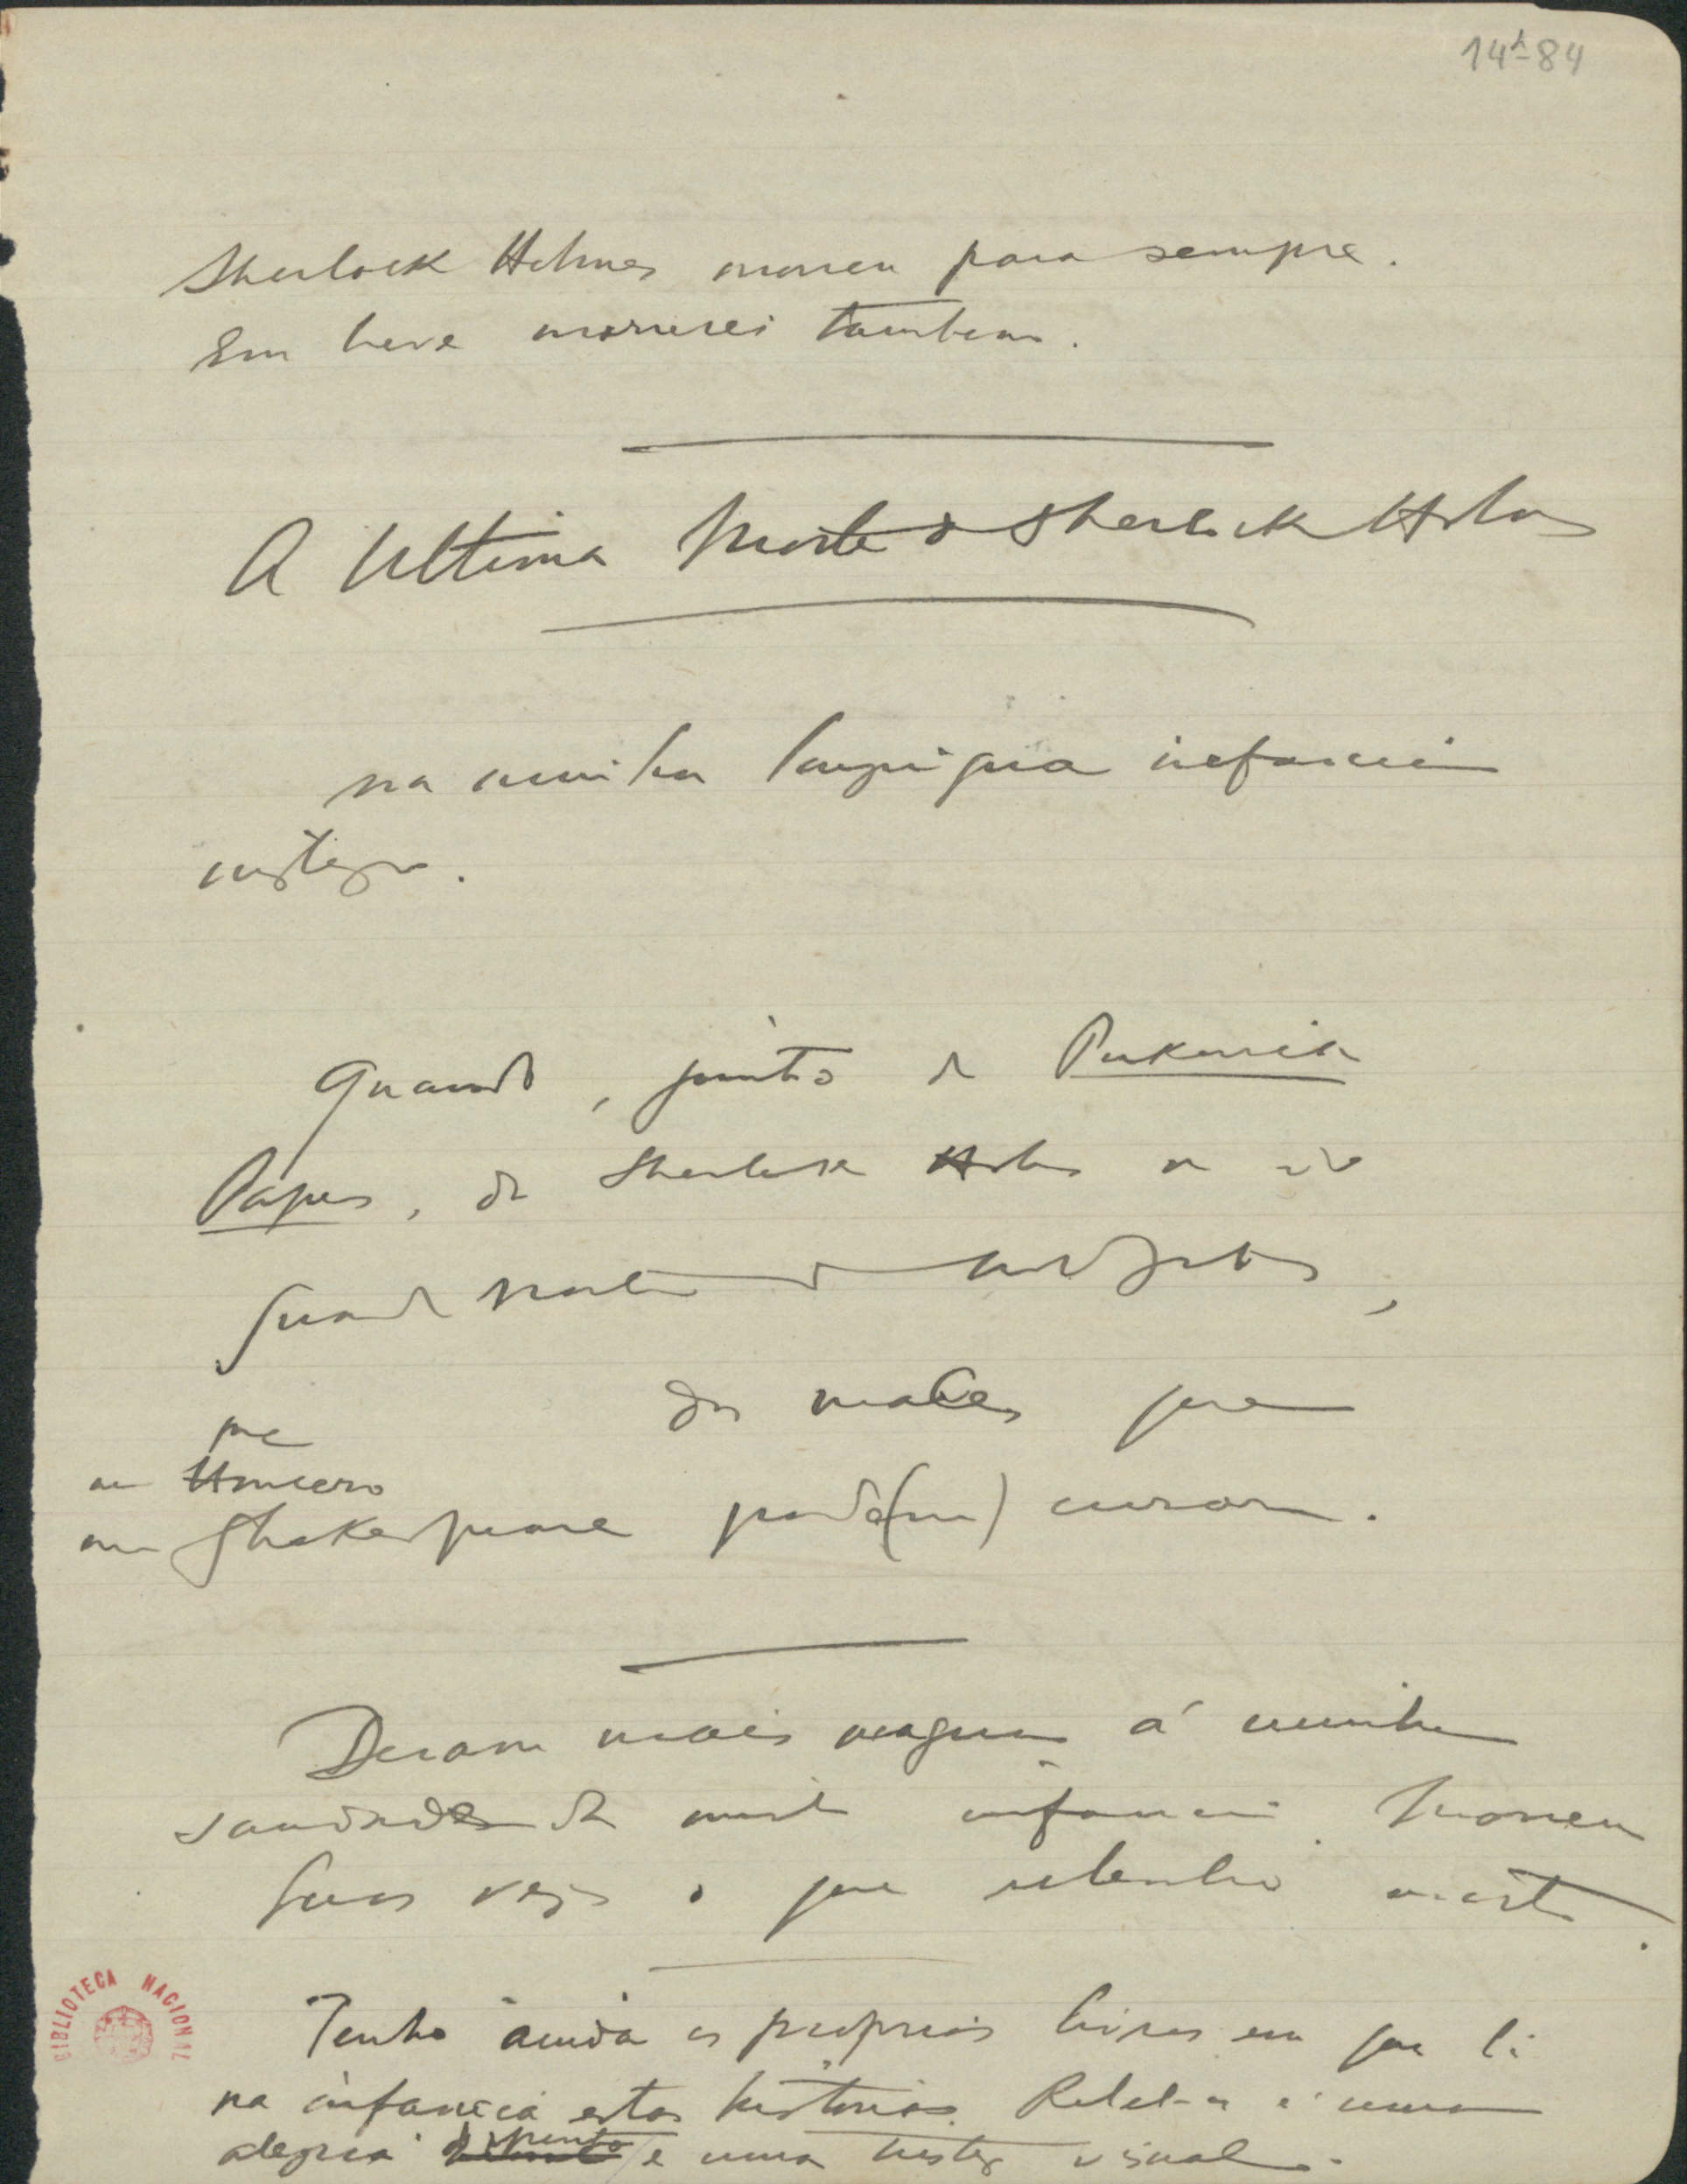 14A-84
Sherlock Holmes morreu para sempre.
Em breve morrerei tambem.
A Ultima Morte de Sherlock Holmes
na minha longinqua infancia
Quando, junto de Pickwick
Papers, de Sherlock Holmes
dos males que
que
ou Homero
ou Shakespeare pode(m) curar.
Deram mais maguas á minha
saudade da morta infancia. Morreu
duas vezes o que relembro morto.
Tenho ainda os proprios livros em que li
na infancia estas historias. Relel-as é uma
alegria e uma tristeza visual.
BIBLIOTECA NACIONAL